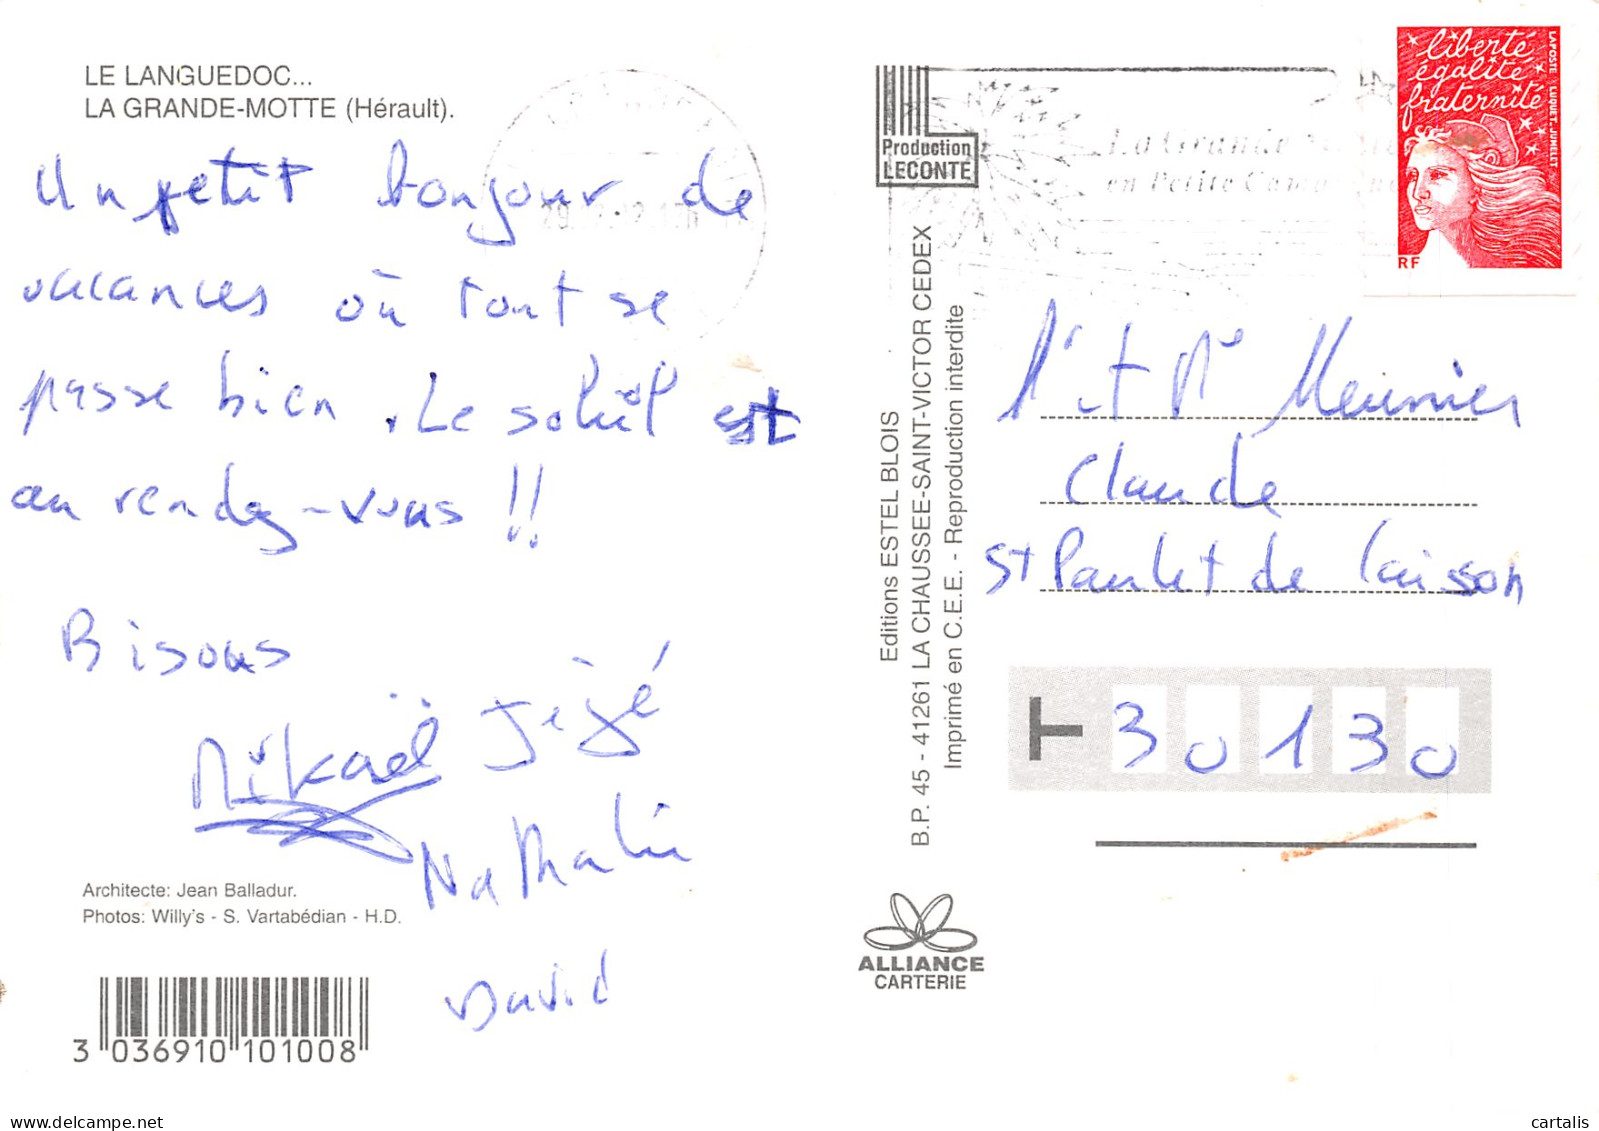 LE LANGUEDOC...
LA GRANDE-MOTTE (Hérault).
Un petit bonjour de
vacances où tout se
passe bien. Le soleil est
au rendez-vous !!
Bisous
Mikaël Jéjé
Nathalie
David
Architecte: Jean Balladur.
Photos: Willy's - S. Vartabédian - H.D.
3 036910 101008
Production
LECONTE
Editions ESTEL BLOIS
B.P. 45 - 41261 LA CHAUSSEE-SAINT-VICTOR CEDEX
Imprimé en C.E.E. - Reproduction interdite
ALLIANCE
CARTERIE
La Grande
en Petite
liberté
égalité
fraternité
LA POSTE LUQUET. JUMELET
RF
Mr et Me Meunier
Claude
St Paulet de Caisson
T 30130
cartalis